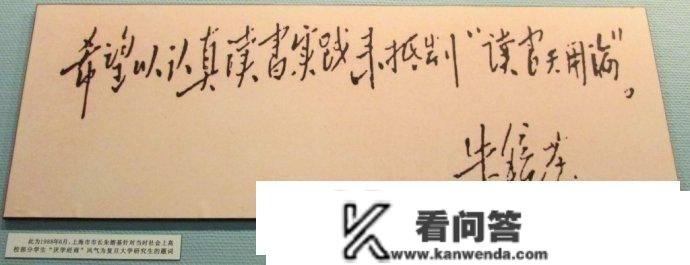 希望以认真读书实践来抵制“读书无用论”。
朱镕基
此为1988年6月,上海市市长朱镕基针对当时社会上高
校部分学生“厌学经商”风气为复旦大学研究生的题词
K 看问答
www.kanwenda.com